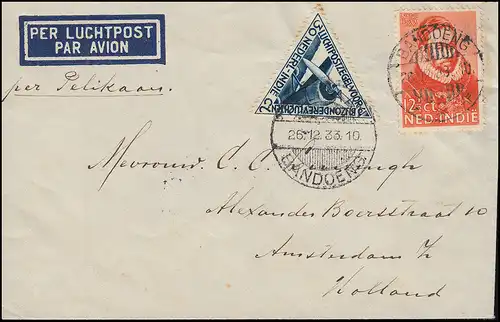 PER LUCHTPOST
PAR AVION
per Pelikaan.
30 NEDERL. INDIE CT
LUCHTPOSTZEGEL VOOR
BIJZONDERE VLUCHTEN
BANDOENG
12½ CT.
NED-INDIE
26.12.33.10.
BANDOENG
Mevrouw. C. C.
Alexander Boersstraat 10
Amsterdam Z
Holland